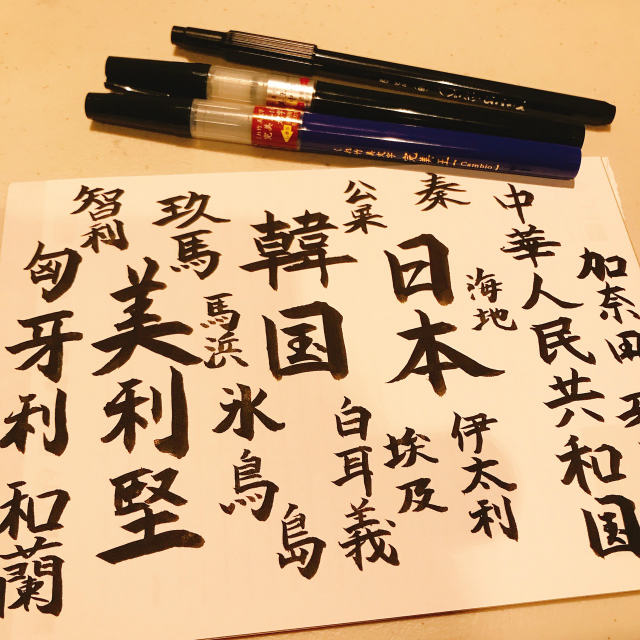 Cambio
加奈田
中華人民共和国
秦
海地
伊太利
日本
埃及
公果
白耳義
韓国
島
玖馬
馬浜
氷鳥
智利
美利堅
匈牙利
和蘭